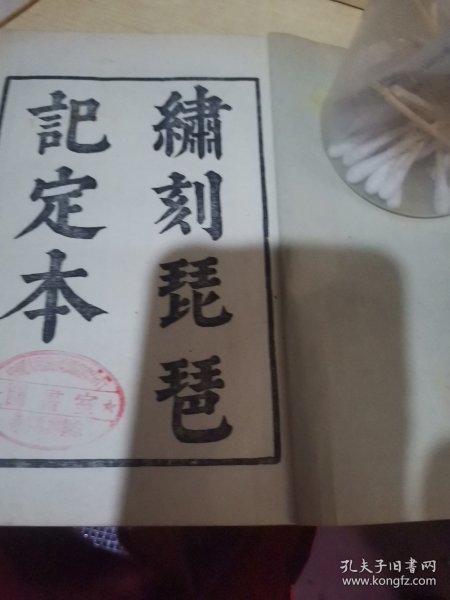 繡刻琵琶
記定本
孔夫子旧书网
www.kongfz.com